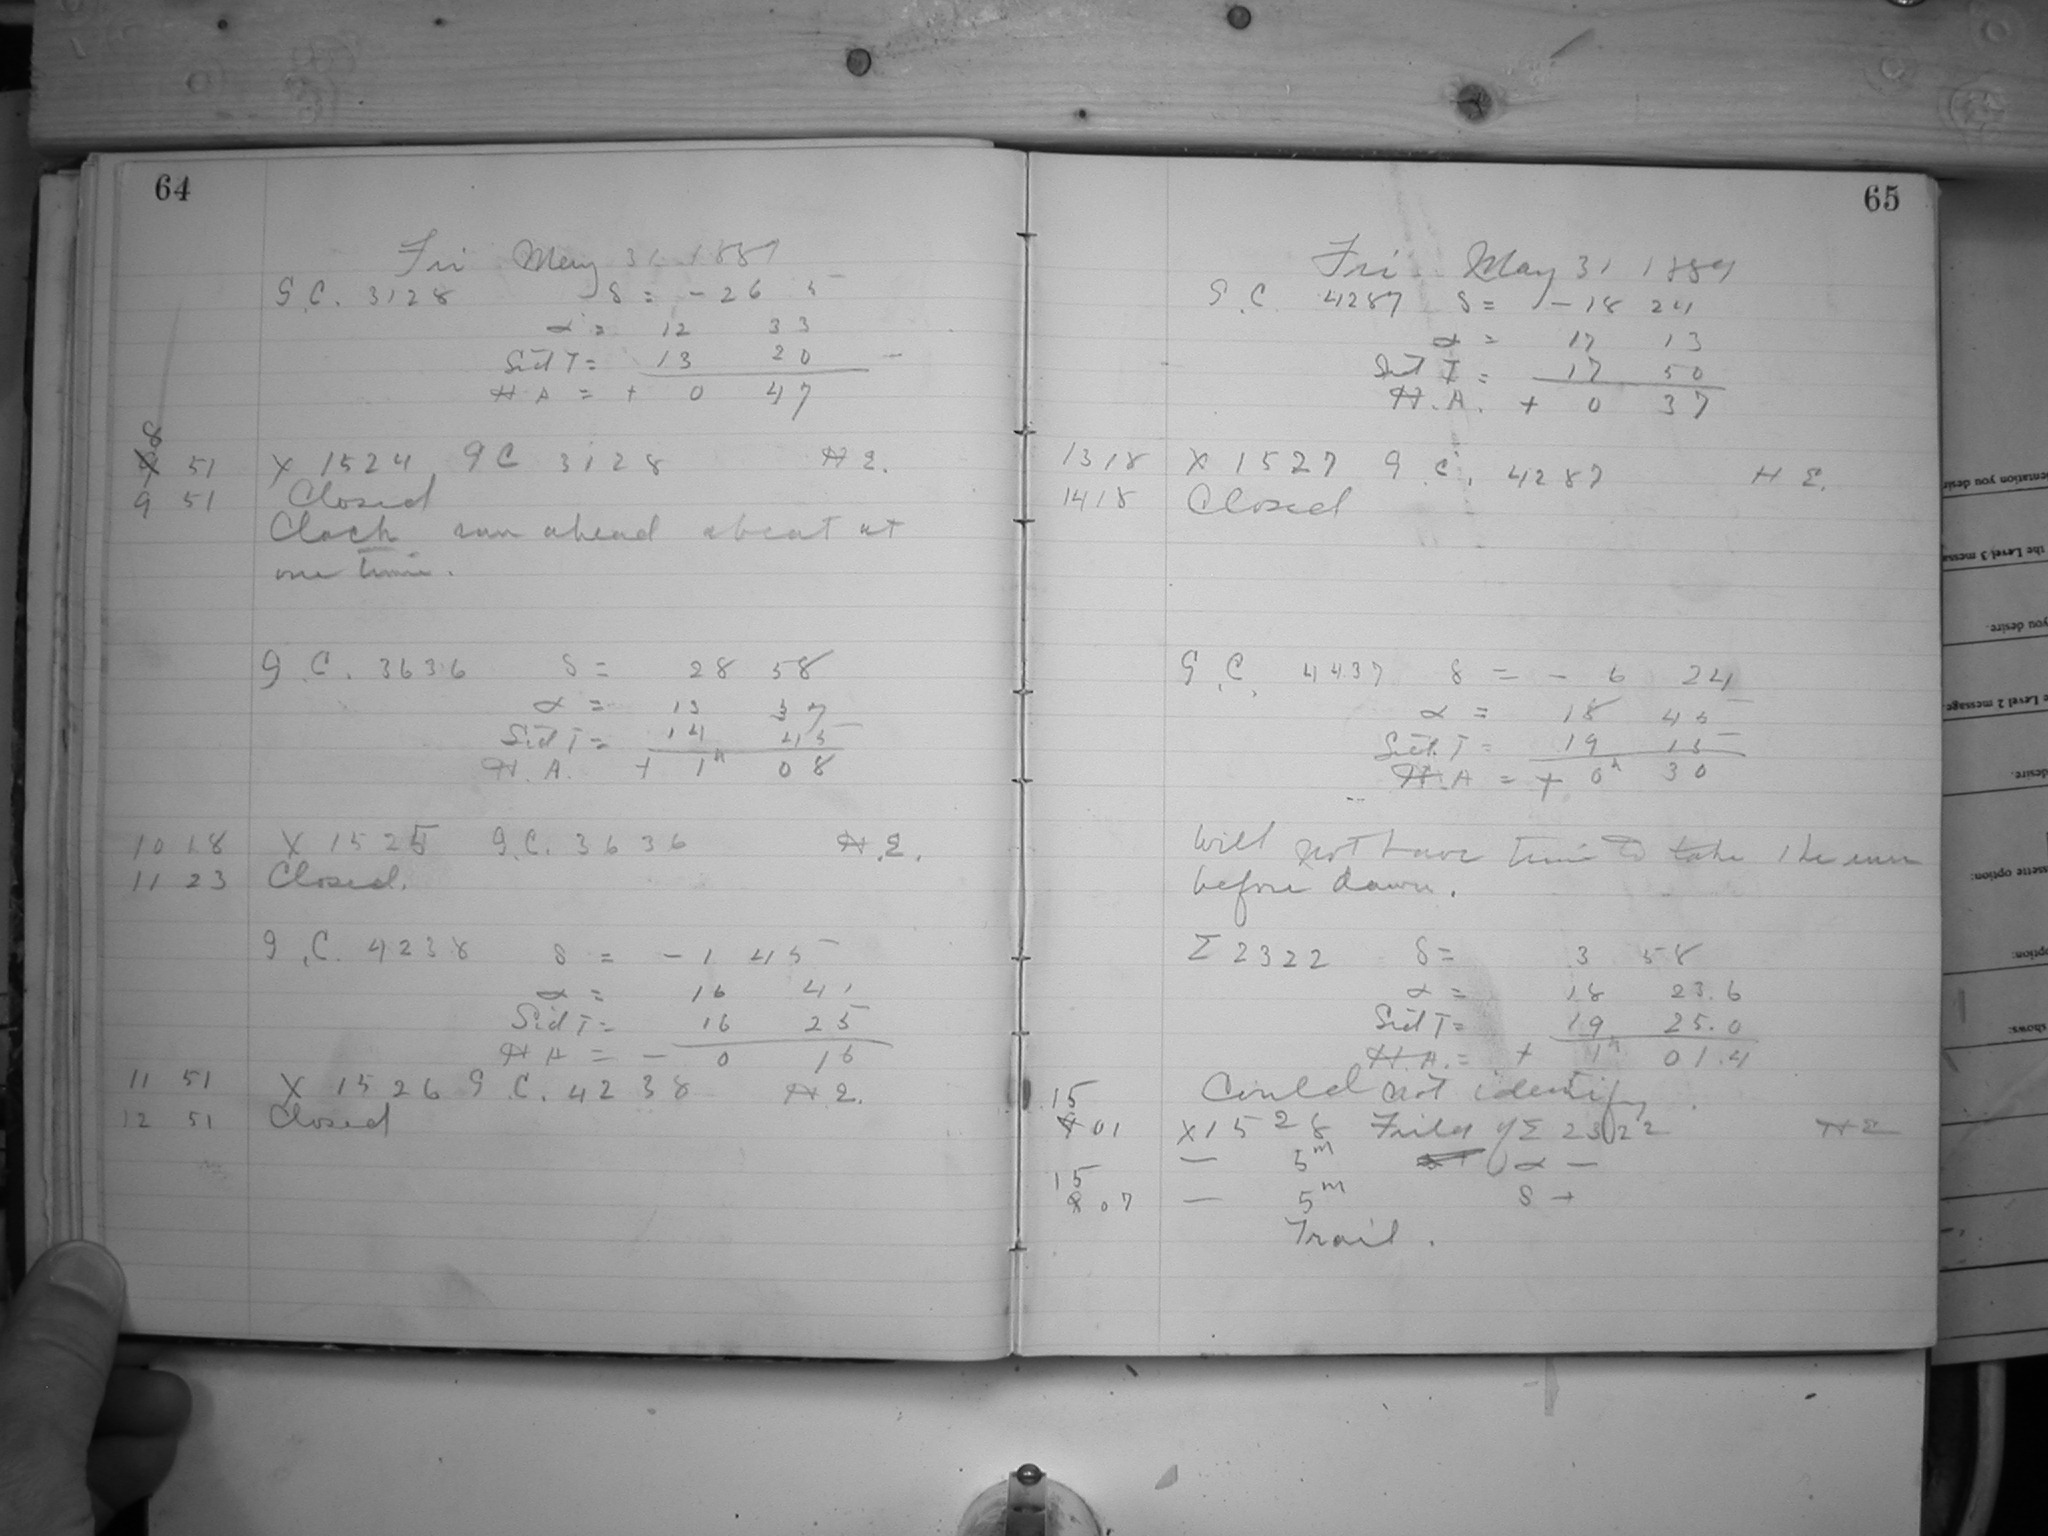 64
Fri May 31 1889
G.C. 3128 δ = - 26 5
α = 12 33
Sid T = 13 20
H A = + 0 47
8 51 X 1524 G C 3128 H E.
9 51 Closed
Clock ran ahead a beat at
one time.
G.C. 3636 δ = 28 58
α = 13 37
Sid T = 14 45
H.A. + 1h 08
10 18 X 1525 G.C. 3636 H.E.
11 23 Closed.
G.C. 4238 δ = - 1 45
α = 16 41
Sid T = 16 25
H A = - 0 16
11 51 X 1526 G.C. 4238 H E.
12 51 Closed
65
Fri May 31 1889
G.C. 4287 δ = - 18 24
α = 17 13
Sid T = 17 50
H.A. + 0 37
13 18 X 1527 G.C. 4287 H E.
14 18 Closed
G.C. 4437 δ = - 6 24
α = 18 45
Sid. T = 19 15
H.A = + 0h 30
Will not have time to take
before dawn.
Σ 2322 δ = 3 58
α = 18 23.6
Sid T = 19 25.0
H.A. = + 1h 01.4
Could not identify.
15 01 X 1528 Field of Σ 2322 H E
— 5m α —
15 07 — 5m δ →
Trail.
entation you desir
the Level 3 messa
you desire.
e Level 2 message
desire.
ssette option:
option:
shows: